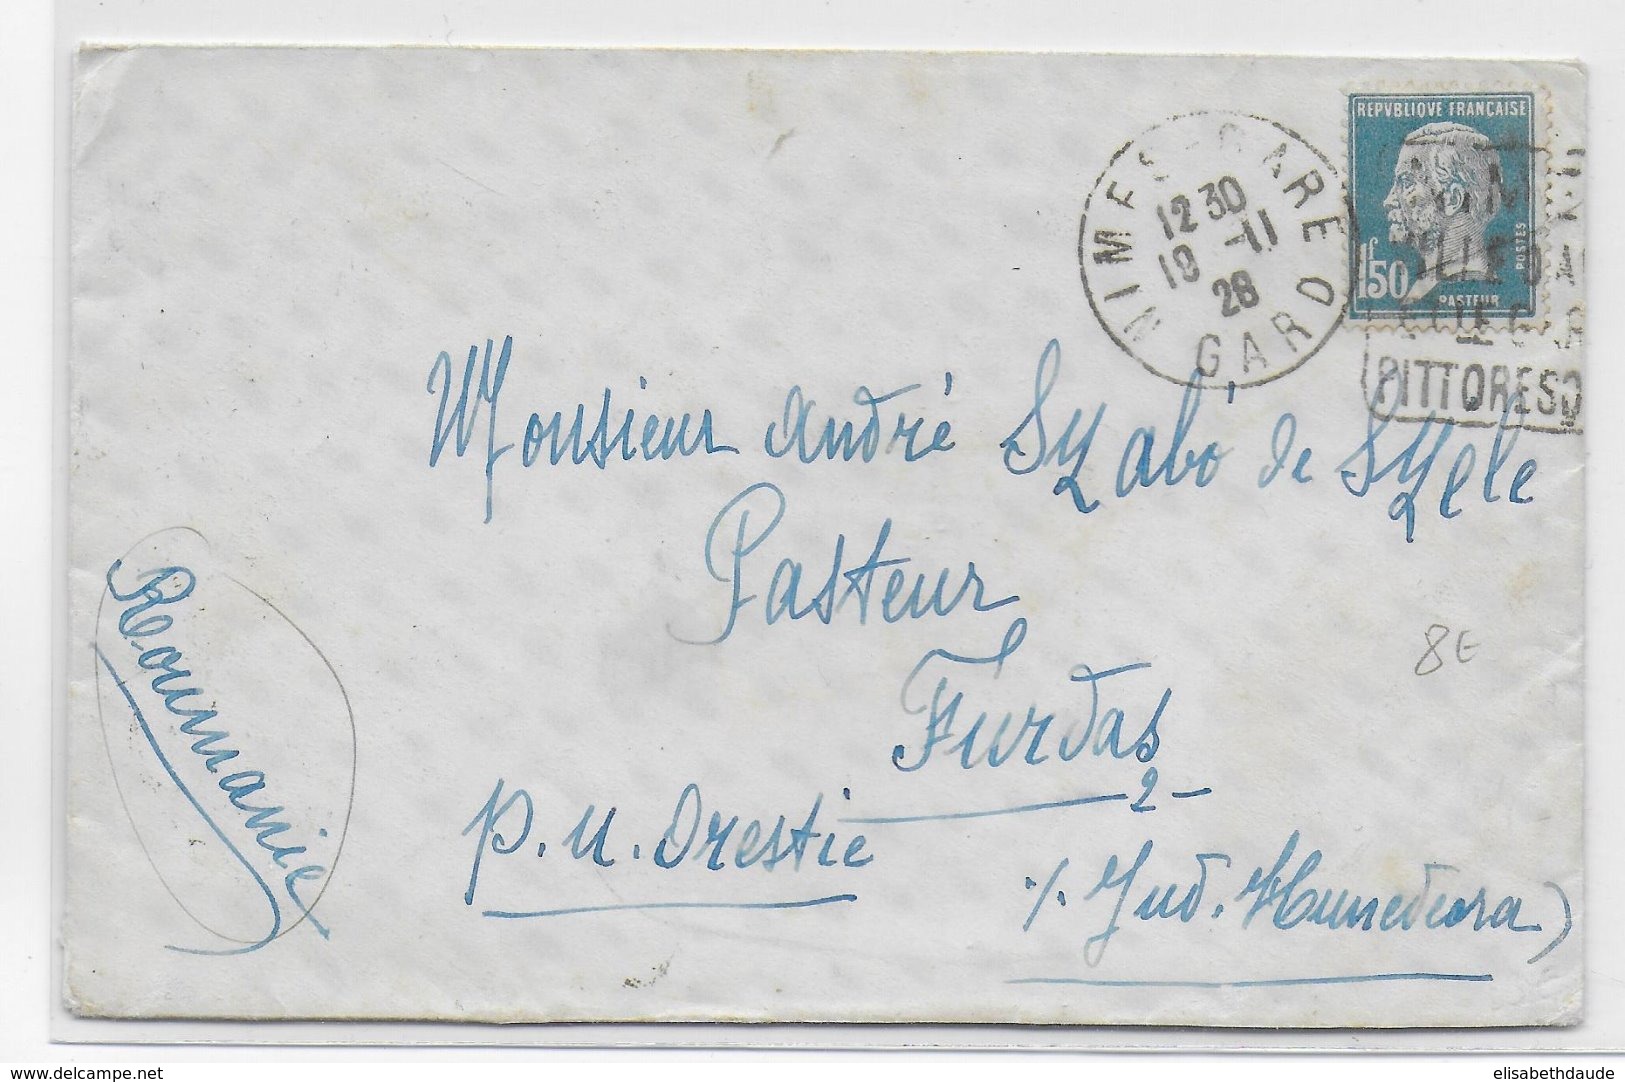 REPVBLIQVE FRANÇAISE
1f50
POSTES
PASTEUR
NIMES-GARE
12 30
-11
28
GARD
PITTORESQ
Monsieur André Szabó de Szele
Pasteur
Furdas
P. U. Orestie
Jud. Hunedeora)
Roumanie
8€
www.delcampe.net
elisabethdaude